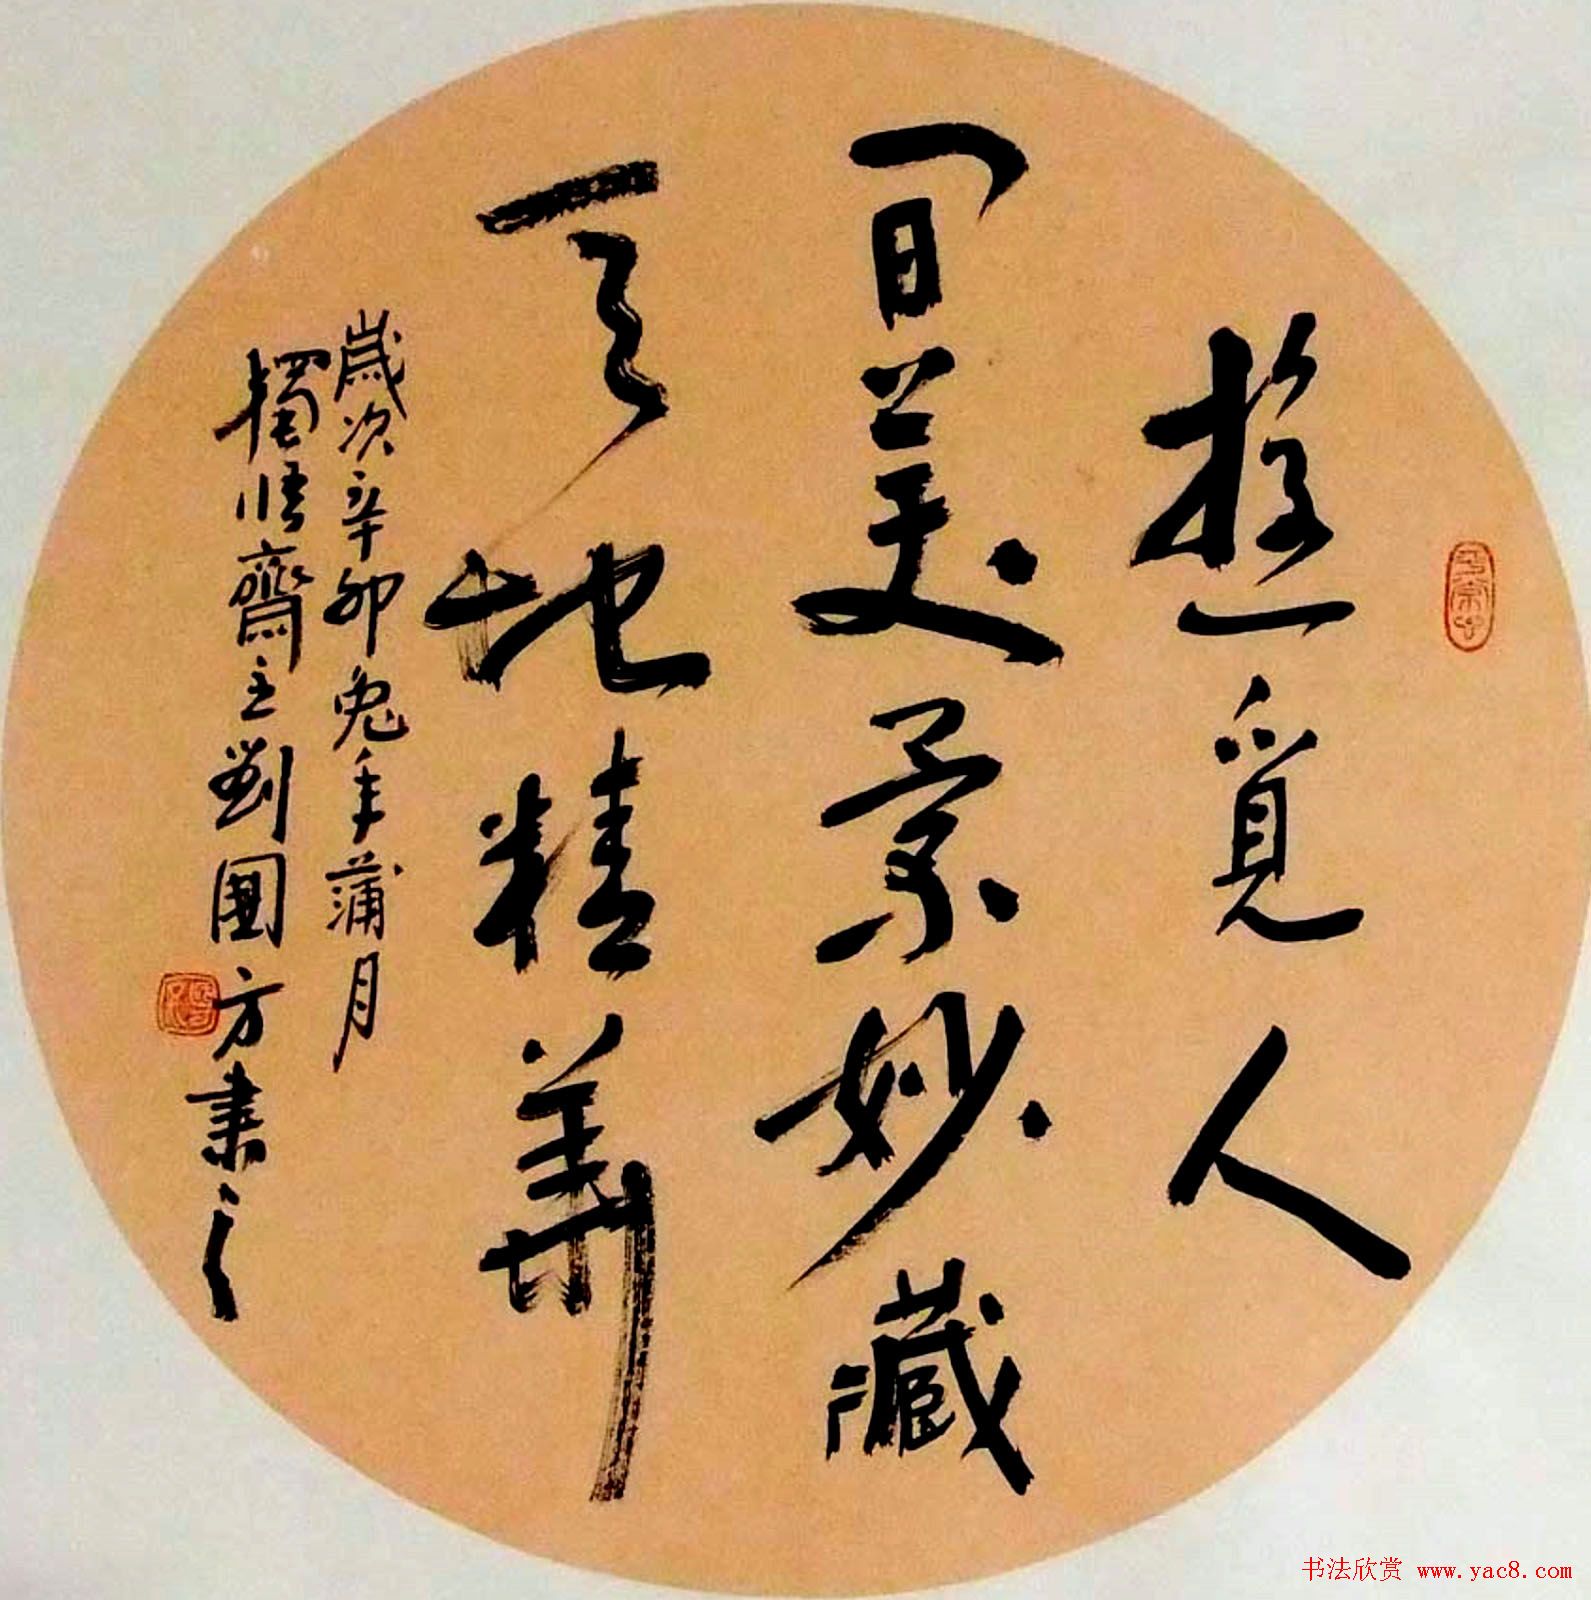 遊覓人
间美景妙藏
天地精華
歲次辛卯兔年蒲月
獨悟齋主劉國方書之
书法欣赏 www.yac8.com